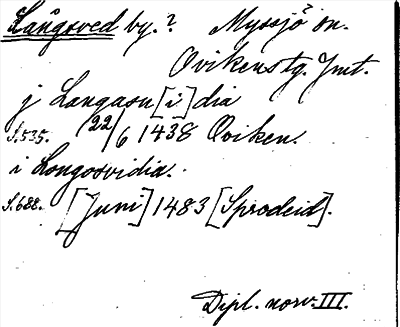 Långsved by.? Myssjö sn.
Ovikens tg. Jmt.
j Langasu[i]dia
S.535. 22/6 1438 Oviken.
i Longosvidia.
S.688. [Juni] 1483 [Sprodeid].
Dipl. norv. III.